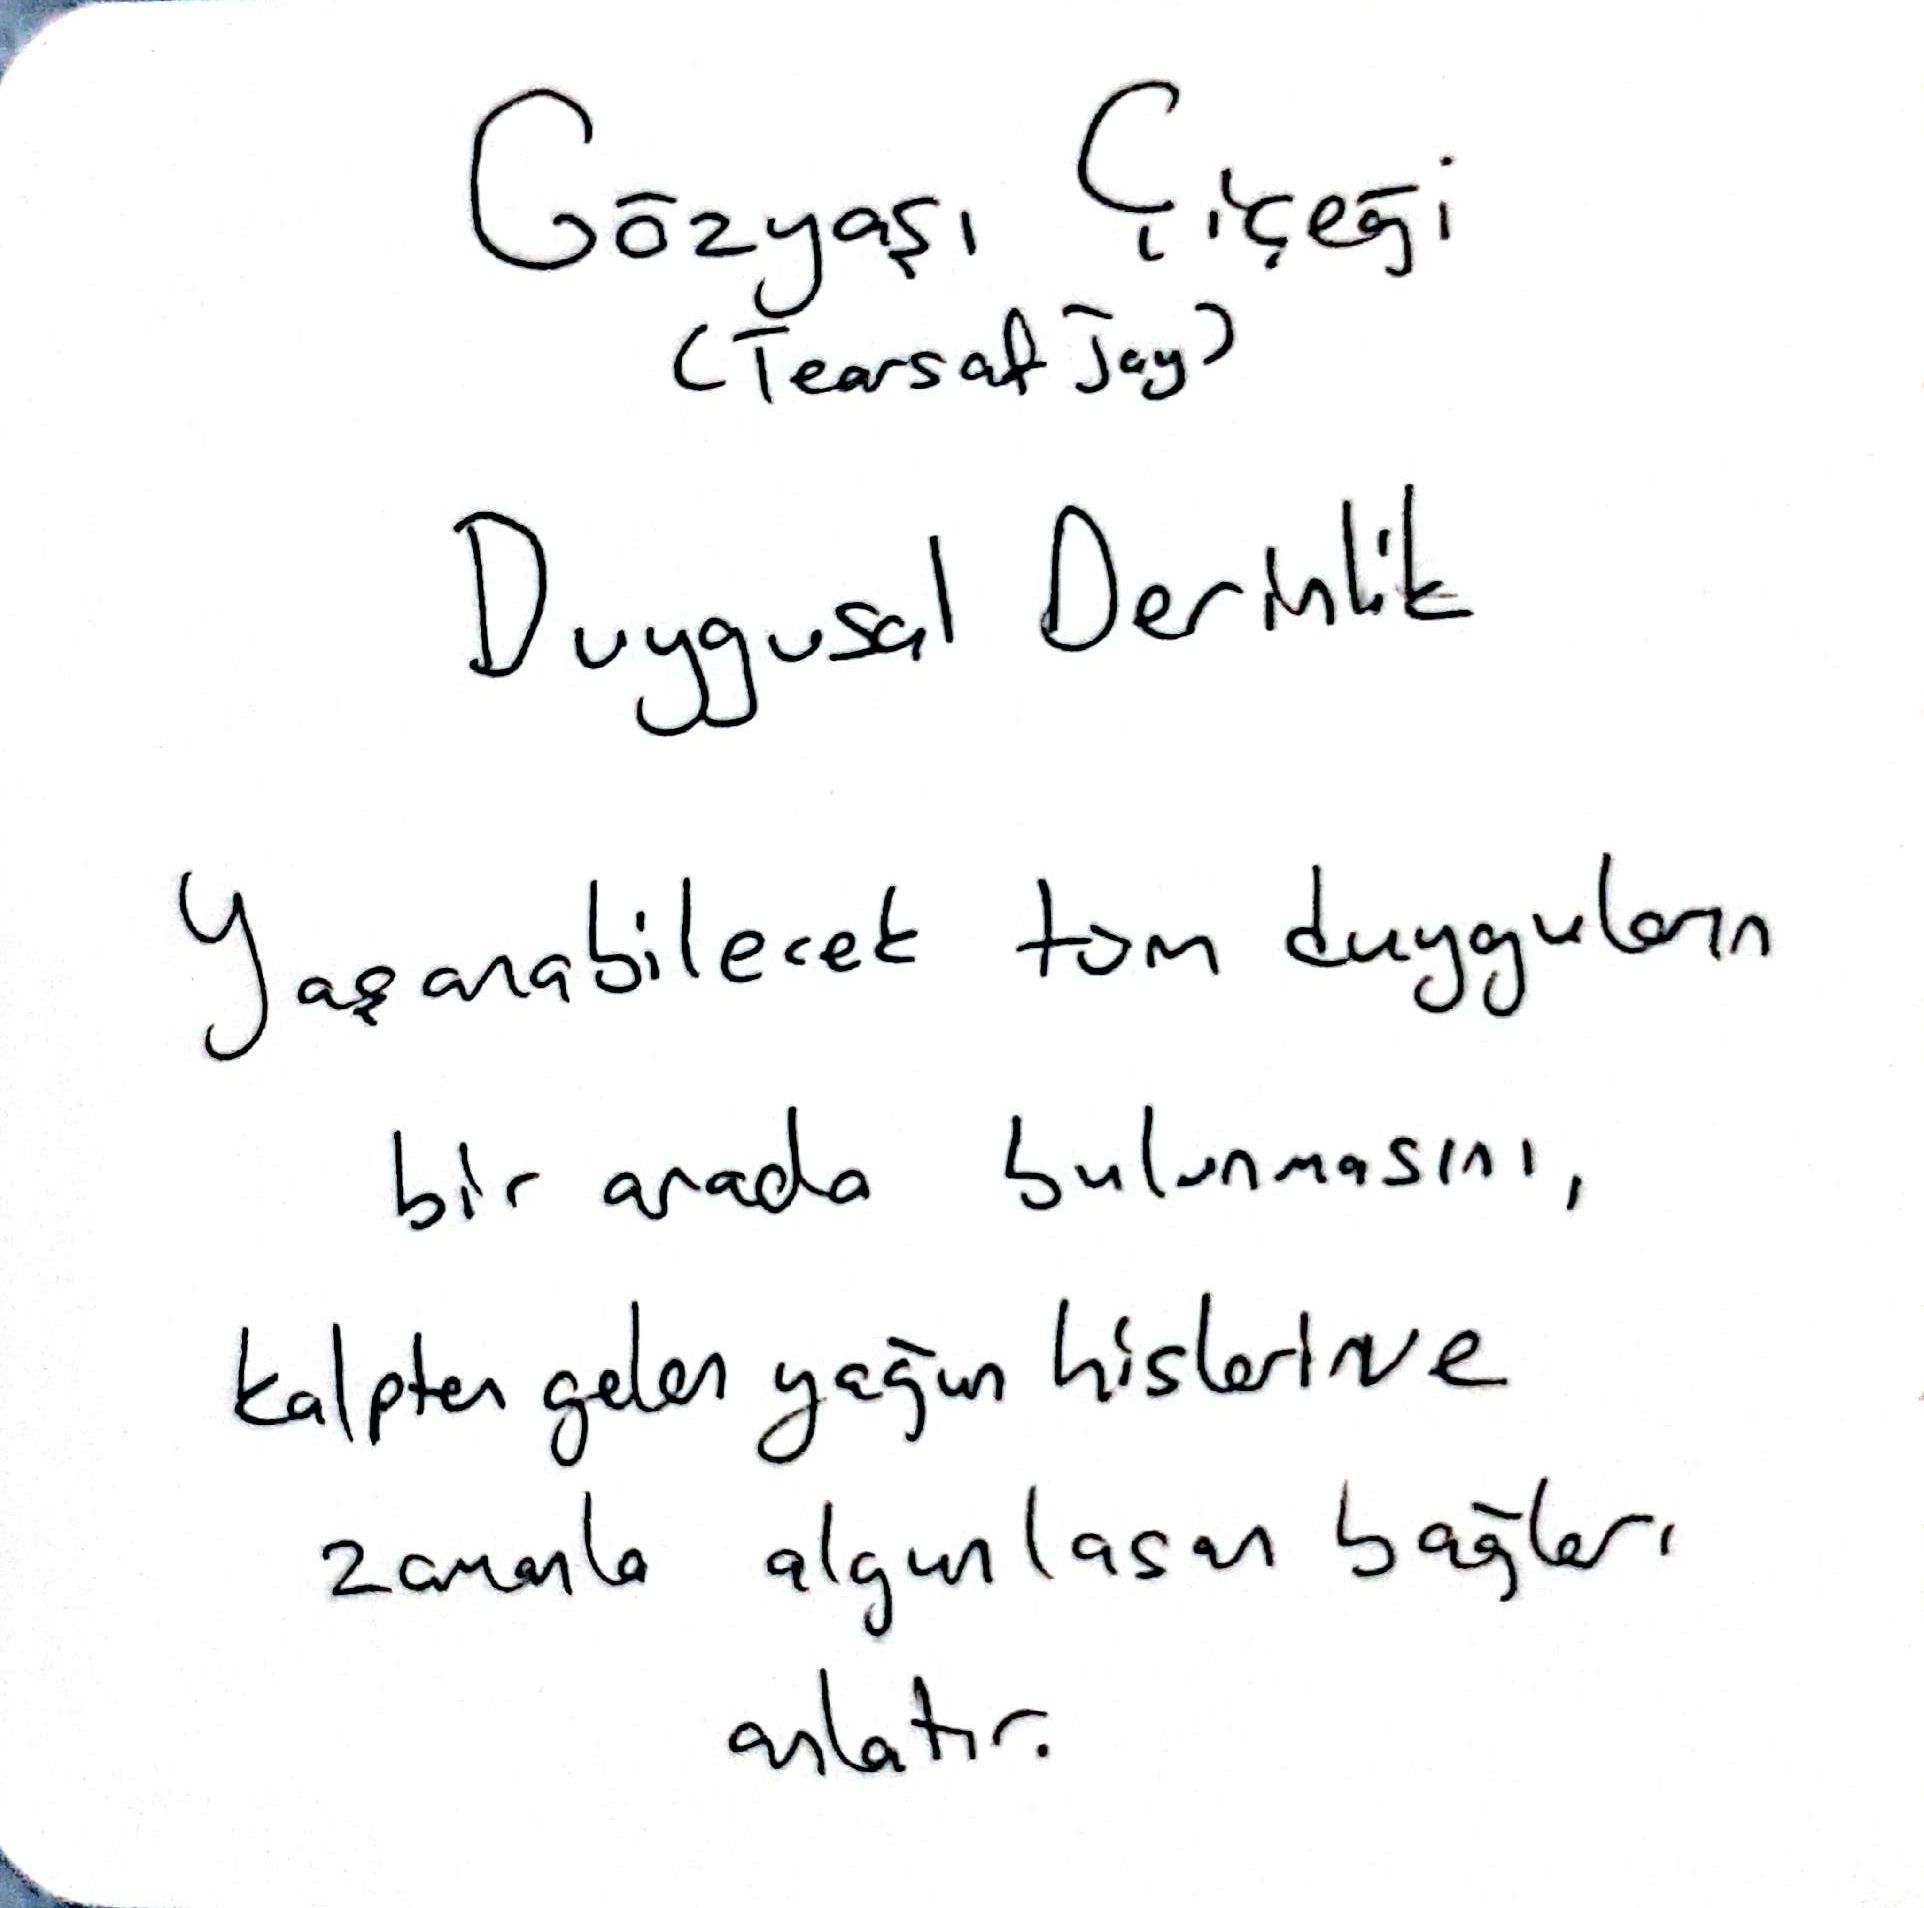 Gözyaşı Çiçeği
(Tears of Joy)
Duygusal Derinlik
Yaşanabilecek tüm duyguların
bir arada bulunmasını,
kalpten gelen yoğun hisleri ve
zamanla olgunlasan bağları
anlatır.